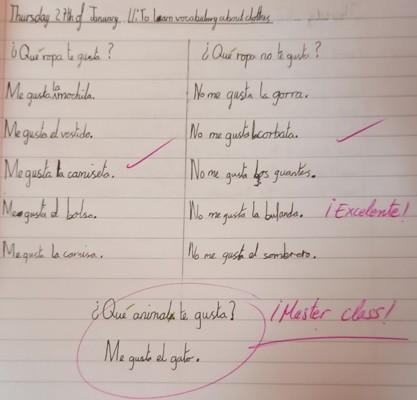 Thursday 27th of January. LI: To learn vocabulary about clothes
¿Qué ropa te gusta? ¿Qué ropa no te gusta?
Me gusta la mochila. No me gusta la gorra.
Me gusta el vestido. No me gusta la corbata.
Me gusta la camiseta. No me gusta los guantes.
Me gusta el bolso. No me gusta la bufanda. ¡Excelente!
Me gusta la camisa. No me gusta el sombrero.
¿Qué animal te gusta? ¡Master class!
Me gusta el gato.